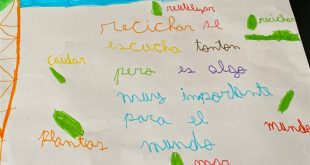 reutilizar
recichar se
recichar
escucha tonton
cuidar
pero es algo
muy importante
para el
mundo
mundo
Plantas
mar